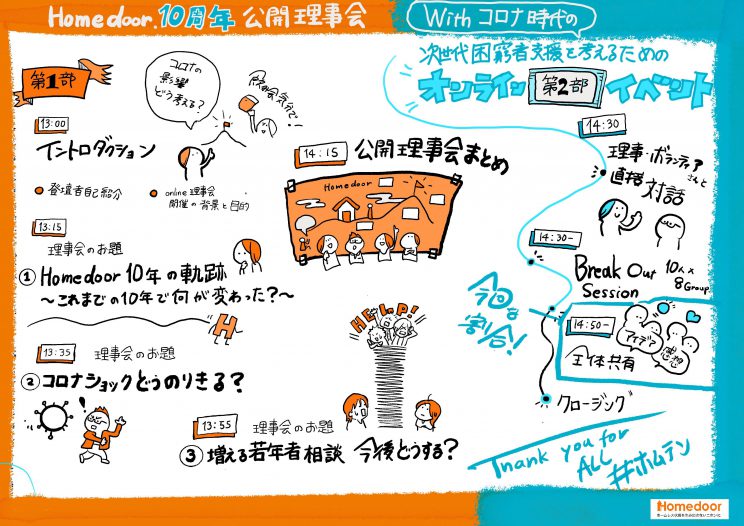 Homedoor 10周年 公開理事会
第1部
コロナの
影響
どう考える?
13:00
イントロダクション
登壇者自己紹介
online理事会
開催の背景と目的
13:15
理事会のお題
① Homedoor 10年の軌跡
〜これまでの10年で何が変わった?〜
H
13:35
理事会のお題
② コロナショックどうのりきる?
13:55
理事会のお題
③ 増える若年者相談 今後どうする?
HELP!
14:15
公開理事会まとめ
Homedoor
With コロナ時代の
次世代困窮者支援を考えるための
オンライン 第2部 イベント
14:30
理事・ボランティアさんと
直接対話
14:30-
Break Out
Session
10人×
8Group
14:50-
全体共有
アイデア
感想
クロージング
Thank you for
ALL
#ホムテン
Homedoor